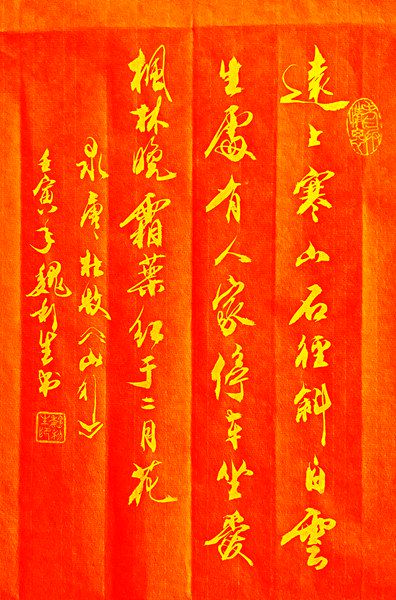 遠上寒山石徑斜白雲
生處有人家停车坐愛
楓林晚霜葉红于二月花
录唐杜牧《山行》
壬寅年魏利生书